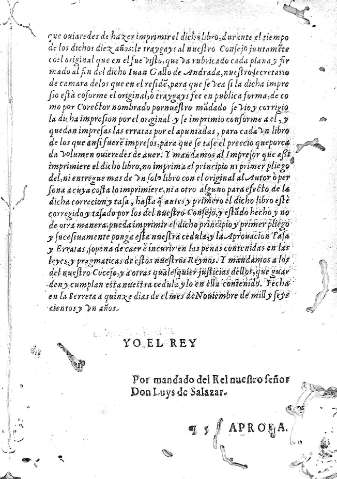 que ouieredes de hazer imprimir el dicho libro, durante el tiempo
de los dichos diez años: le traygays al nuestro Consejo juntamẽte
cõ el original que en el fue visto, que va rubricado cada plana y fir
mado al fin del dicho Iuan Gallo de Andrada, nuestro secretario
de camara de los que en el residẽ, para que se vea si la dicha impre
sió està cõforme el original, ò traygays fee en publica forma, de co
mo por Corector nombrado por nuestro mãdado se vio y corrigio
la dicha impression por el original y se imprimio conforme a el, y
quedan impresas las erratas por el apuntadas, para cada vn libro
de los que ansi fuerẽ impresos, para que se tase el precio que por ca
da volumen ouieredes de auer. Y mandamos al Impresor que asi
imprimiere el dicho libro, no imprima el principio ni primer pliego
del, ni entregue mas de vn solo libro con el original al Autor ò per
sona a cuya costa lo imprimiere, ni a otro alguno para efecto de la
dicha correcion y tasa, hasta q̃ antes y primero el dicho libro estè
corregido y tasado por los del nuestro Consejo, y estãdo hecho y no
de otra manera pueda imprimir el dicho principio y primer pliego
y sucesiuamente ponga esta nuestra cedula, y la Aprouacion Tasa
y Erratas, so pena de caer è incurir en las penas contenidas en las
leyes, y pragmaticas de estos nuestros Reynos. Y mandamos a los
del nuestro Cõcejo, y a otras qualesquier justicias dellos, que guar
den y cumplan esta nuestra cedula y lo en ella contenido. Fecha
en la Serreta a quinze dias del mes de Nouiembre de mill y seys
cientos y vn años.
YO EL REY
Por mandado del Rei nuestro señor
Don Luys de Salazar.
¶ 5 APROVA.